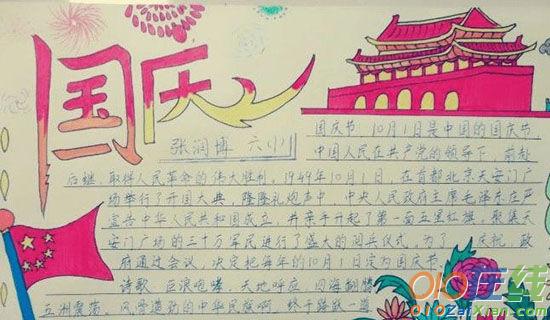 国庆
张润博 六(1)
国庆节 10月1日是中国的国庆节,
中国人民在共产党的领导下, 前赴
后继, 取得人民革命的伟大胜利, 1949年10月1日, 在首都北京天安门广
场举行了开国大典, 隆隆礼炮声中, 中央人民政府主席毛泽东庄严
宣告中华人民共和国成立, 并亲手升起了第一面五星红旗, 聚集天
安门广场的三十万军民进行了盛大的阅兵仪式, 为了 庆祝, 政
府通过会议, 决定把每年的10月1日定为国庆节
诗歌 巨浪咆哮, 天地呼应, 四海翻腾
五洲震荡, 风雪造就的中华民族啊 终于踏跃一
910在线
ZaiXian.com